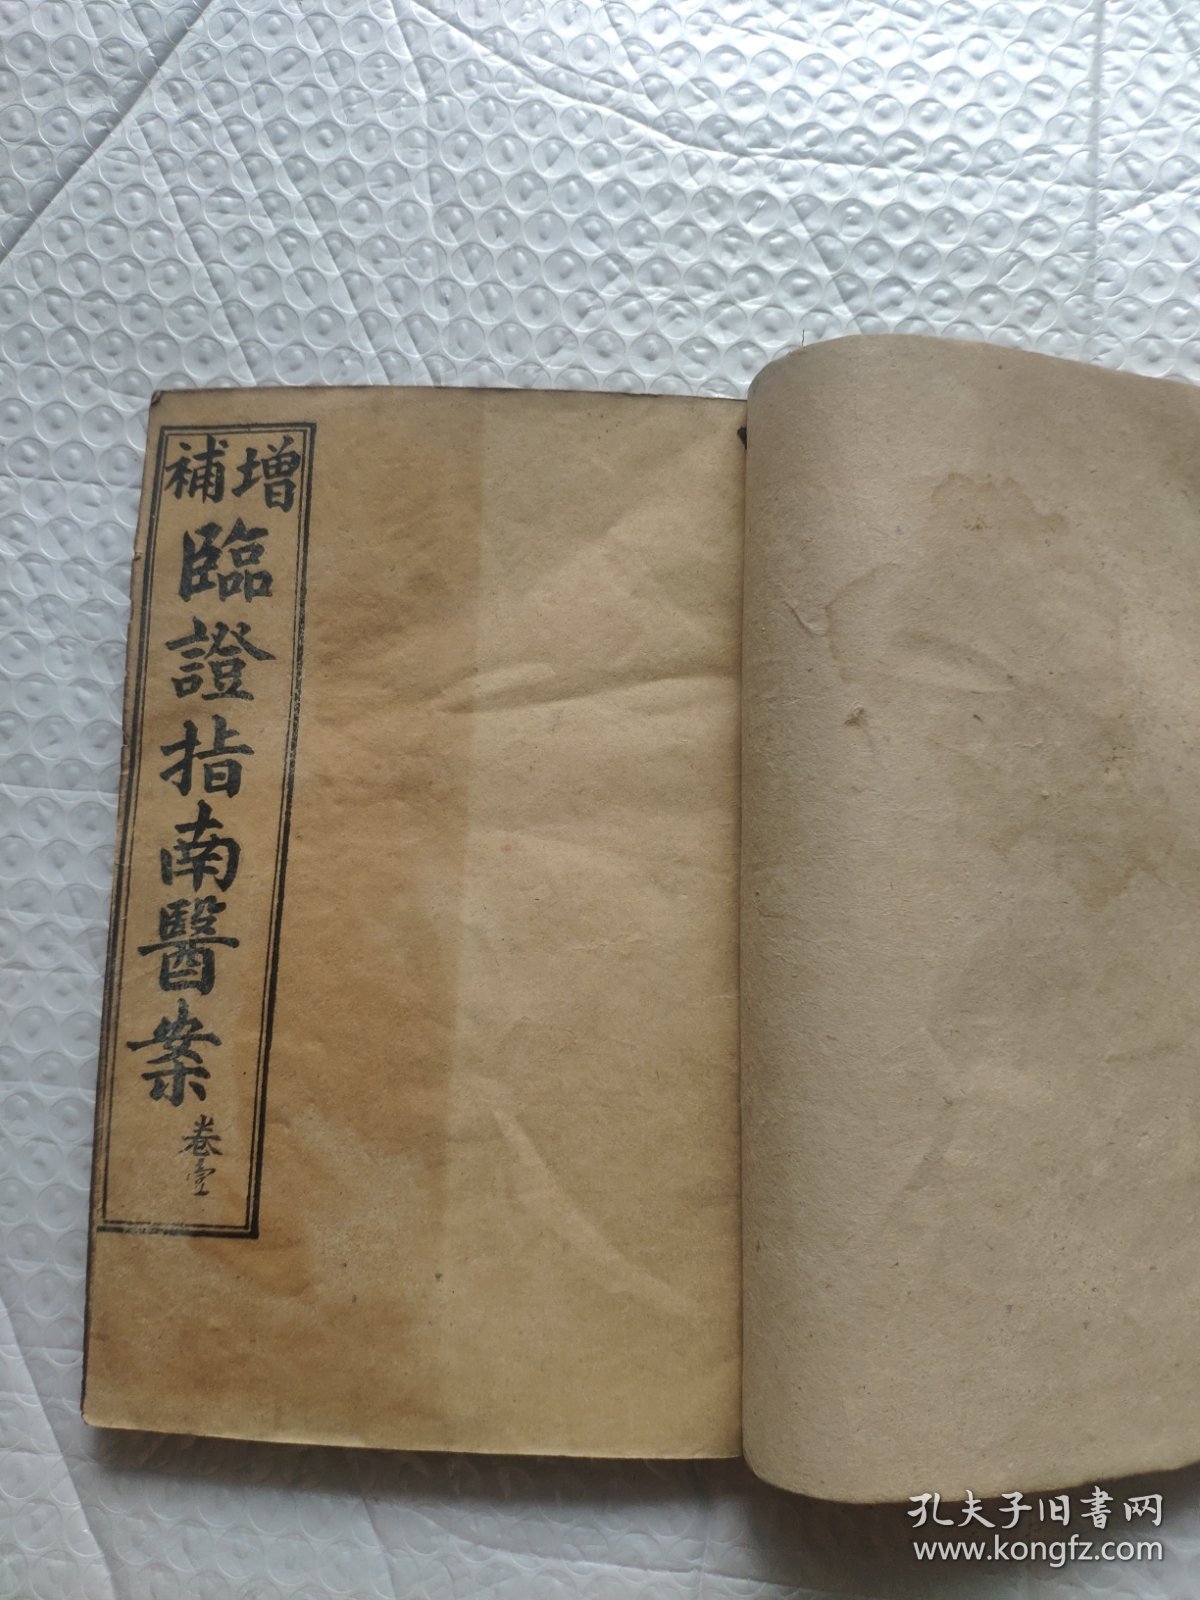 增補
臨證指南醫案
卷壹
孔夫子旧書网
www.kongfz.com